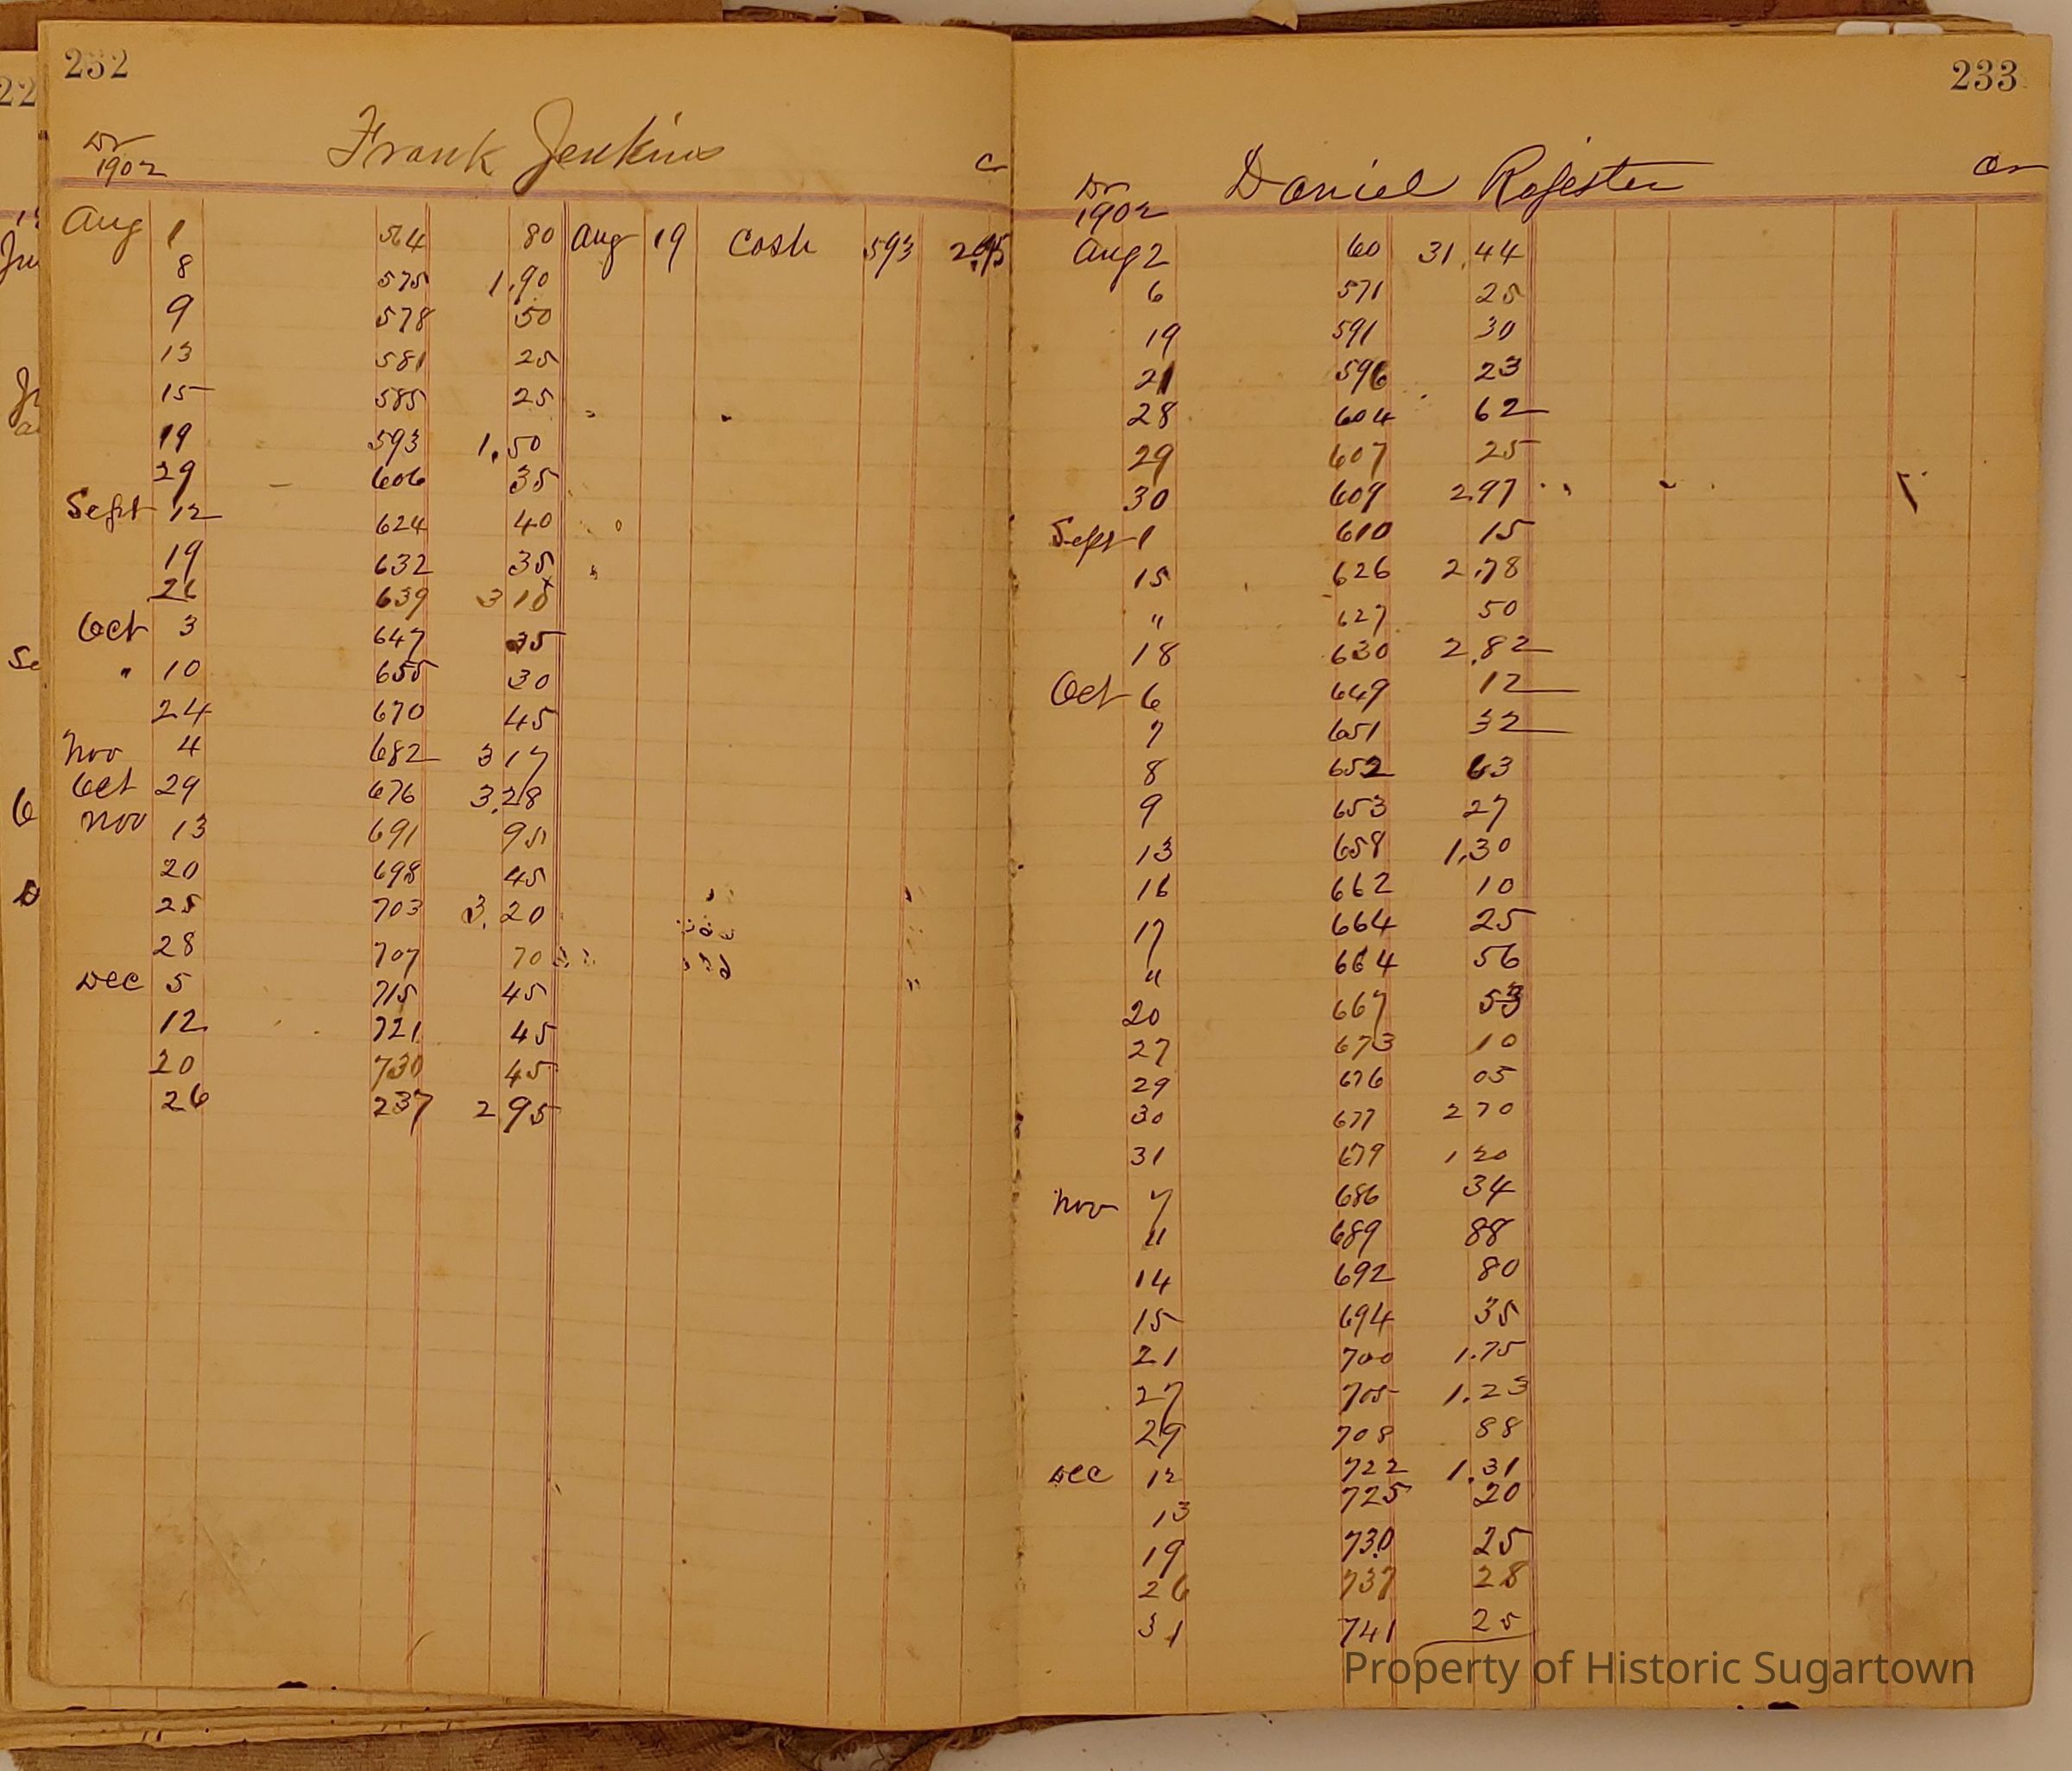 232
Frank Jenkins
Dr
1902
Aug 1 564 80 Aug 19 Cash 593
8 575 1.90
9 578 50
13 581 25
15 585 25
19 593 1.50
29 606 35
Sept 12 624 40
19 632 35
26 639 3 10
Oct 3 647 35
" 10 655 30
24 670 45
Nov 4 682 3 17
Oct 29 676 3.28
Nov 13 691 95
20 698 45
25 703 3.20
28 707 70
Dec 5 715 45
12 721 45
20 730 45
26 237 2 95
233
Daniel Register Cr
Dr
1902
Aug 2 60 31.44
6 571 25
19 591 30
21 596 23
28 604 62
29 607 25
30 609 2 97
Sept 1 610 15
15 626 2.78
" 627 50
18 630 2.82
Oct 6 649 12
7 651 32
8 652 63
9 653 27
13 658 1.30
16 662 10
17 664 25
" 664 56
20 667 53
27 673 10
29 676 05
30 677 2 70
31 679 1 20
Nov 7 686 34
11 689 88
14 692 80
15 694 35
21 700 1.75
27 705 1.23
29 708 88
Dec 12 722 1.31
13 725 20
19 730 25
26 737 28
31 741 25
Property of Historic Sugartown